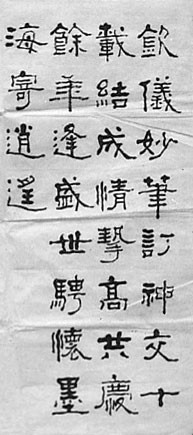 欽儀妙筆訂神交十
載結成情摯高共慶
餘年逢盛世騁懷墨
海寄逍遥